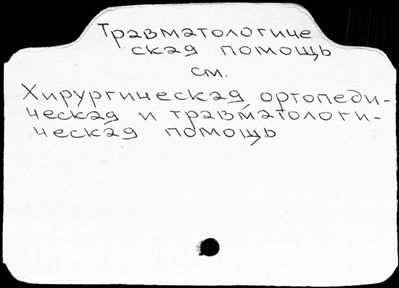 Травматологиче
ская помощь
см.
Хирургическая, ортопеди-
ческая и травматологи-
ческая помощь